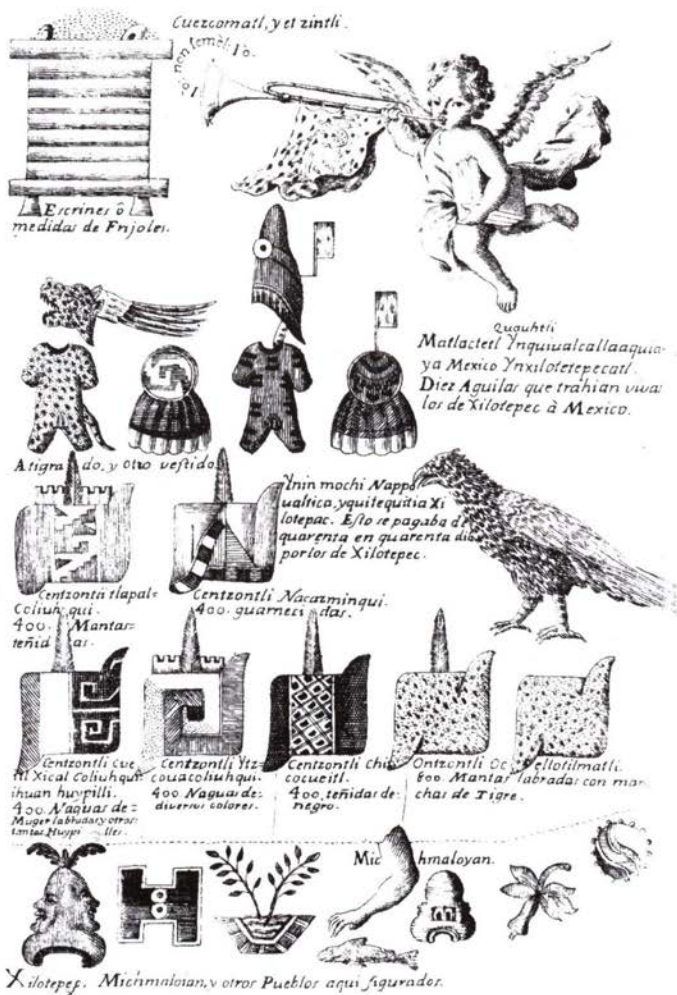 Cuezcomatl, y et zintli.
non temèt
Escrines ô
medidas de Frijoles.
Quauhtli
Matlactetl Ynquiualcallaaquia-
ya Mexico Ynxilotepecatl.
Diez Aguilas que trahian vivas
los de Xilotepec à Mexico.
Atigrado, y otro vestido.
Ynin mochi Nappo
ualtica, yquitequitia Xi
lotepac. Esto se pagaba de
quarenta en quarenta dias
por los de Xilotepec.
Centzontli tlapal=
Coliuhqui.
400. Mantas=
teñidas.
Centzontli Nacazminqui.
400. guarnecidas.
Centzontli Cue
itl Xical Coliuhqui
ihuan huypilli.
400. Naguas de=
Muger labradas y otros
tantas Huypilles.
Centzontli Ytz=
couacoliuhqui.
400 Naguas de=
diversos colores.
Centzontli Chi
cocueitl.
400, teñidas de=
negro.
Ontzontli Ocellotilmatli.
800. Mantas labradas con man
chas de Tigre.
Michmaloyan.
Xilotepeg. Michmaloian, y otros Pueblos aqui figurados.